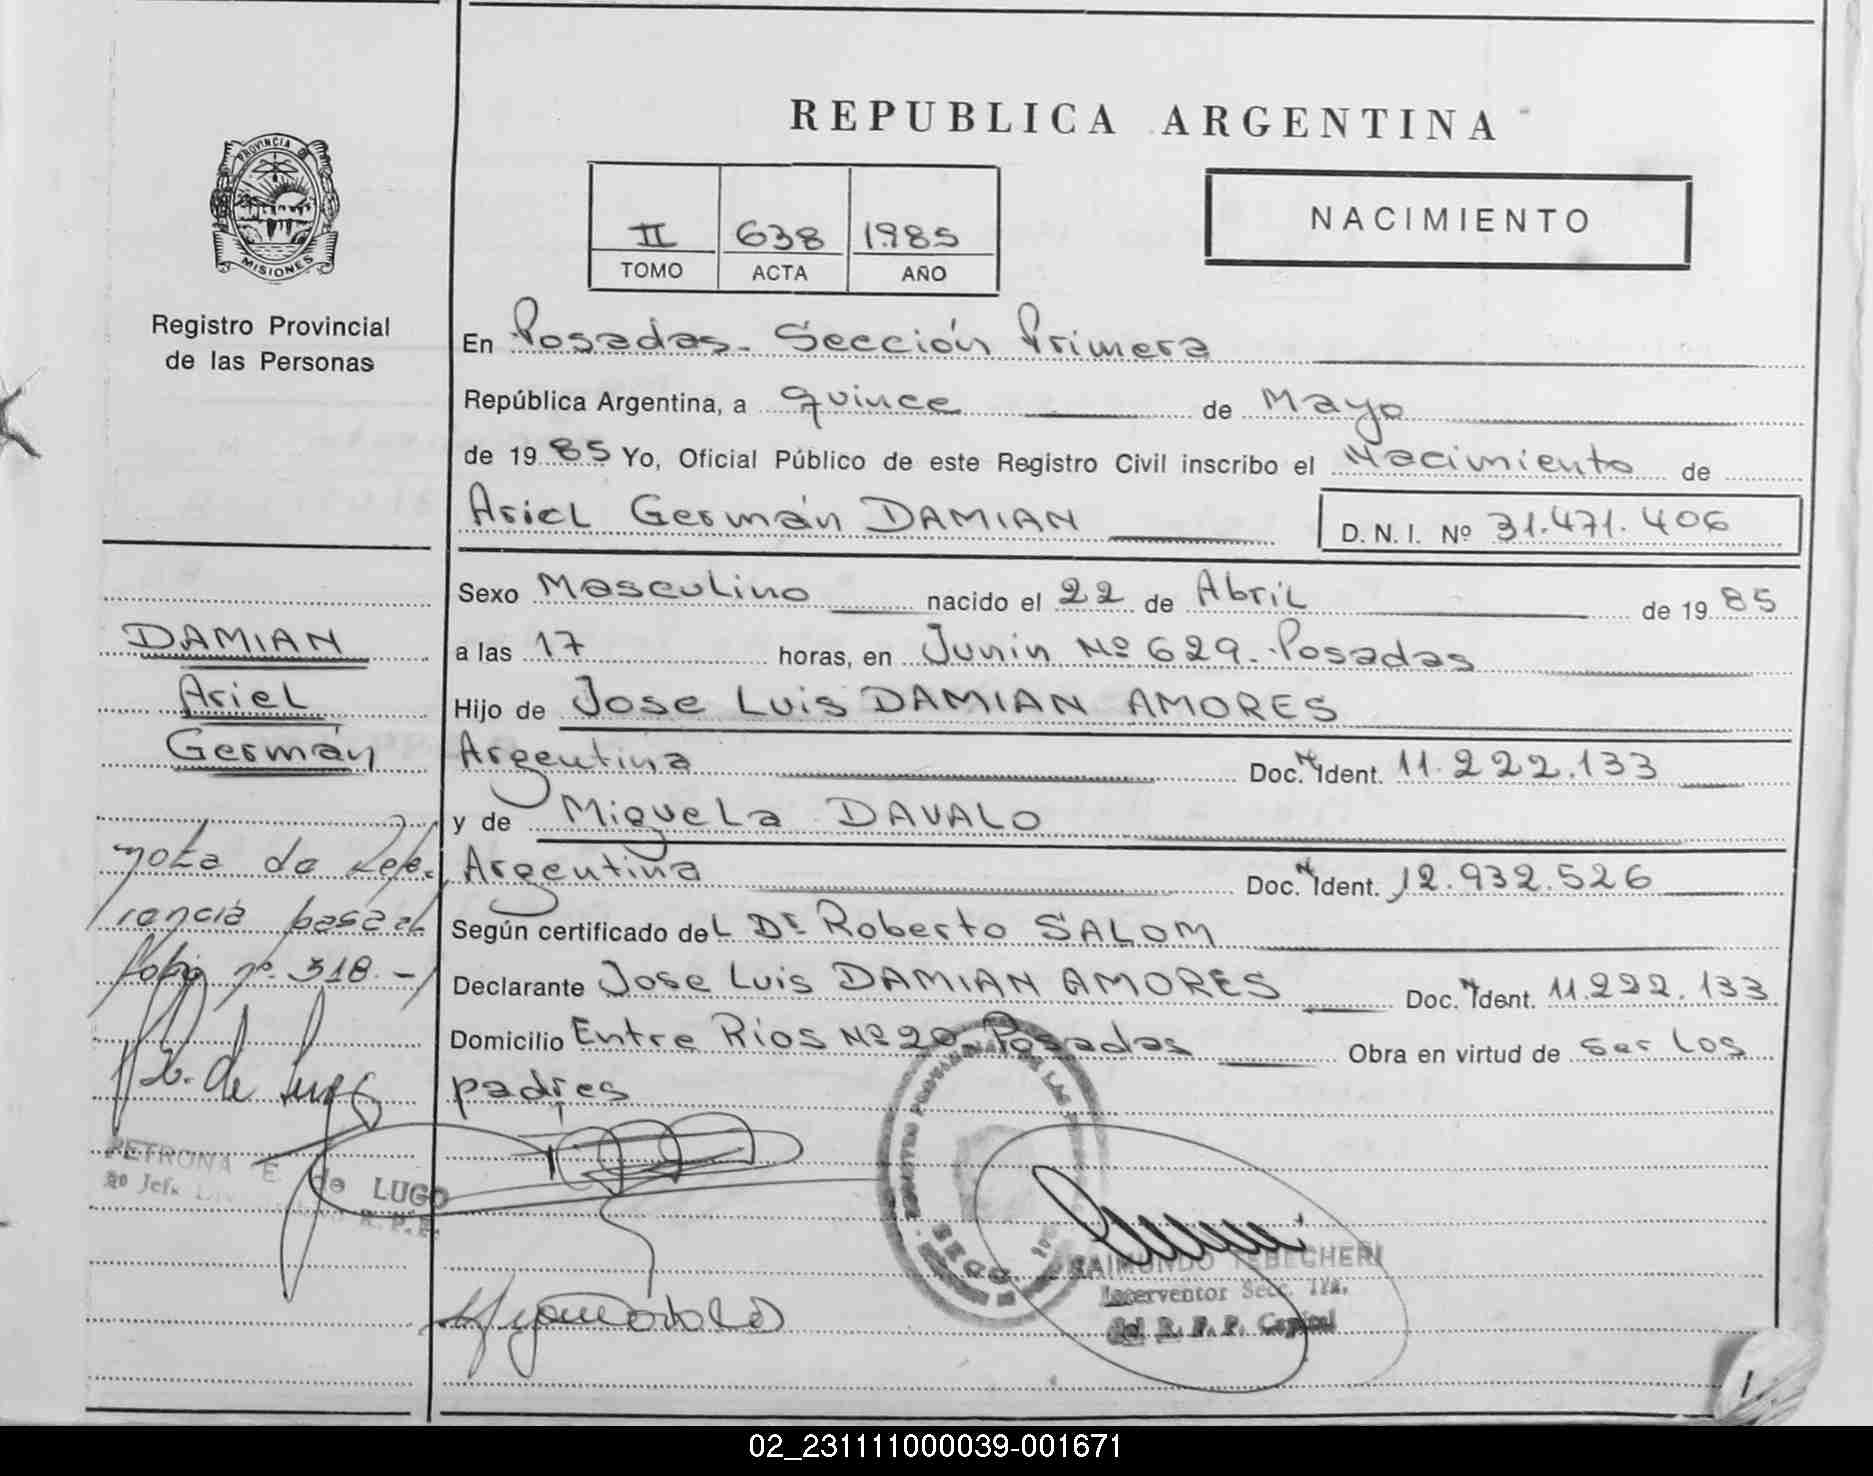 REPUBLICA ARGENTINA
PROVINCIA DE
MISIONES
Registro Provincial
de las Personas
II 638 1985
TOMO ACTA AÑO
NACIMIENTO
En Posadas. Sección Primera
República Argentina, a quince de Mayo
de 1985 Yo, Oficial Público de este Registro Civil inscribo el Nacimiento de
Ariel Germán DAMIAN
D. N. I. Nº 31.471.406
Sexo Masculino nacido el 22 de Abril de 1985
a las 17 horas, en Junin Nº 629. Posadas
Hijo de Jose Luis DAMIAN AMORES
Argentina Doc. N Ident. 11.222.133
y de Miguela DAVALO
Argentina Doc. N Ident. 12.932.526
Según certificado del Dr Roberto SALOM
Declarante Jose Luis DAMIAN AMORES Doc. N Ident. 11.222.133
Domicilio Entre Ríos Nº 20 Posadas Obra en virtud de ser los
padres
DAMIAN
Ariel
Germán
nota de Refe.
rencia pasa al
folio nº 318.-
PETRONA E de LUGO
2º Jefe R. P. P.
RAIMUNDO TEBECHERI
Interventor Secc. 1ra.
del R. P. P. Capital
02_231111000039-001671